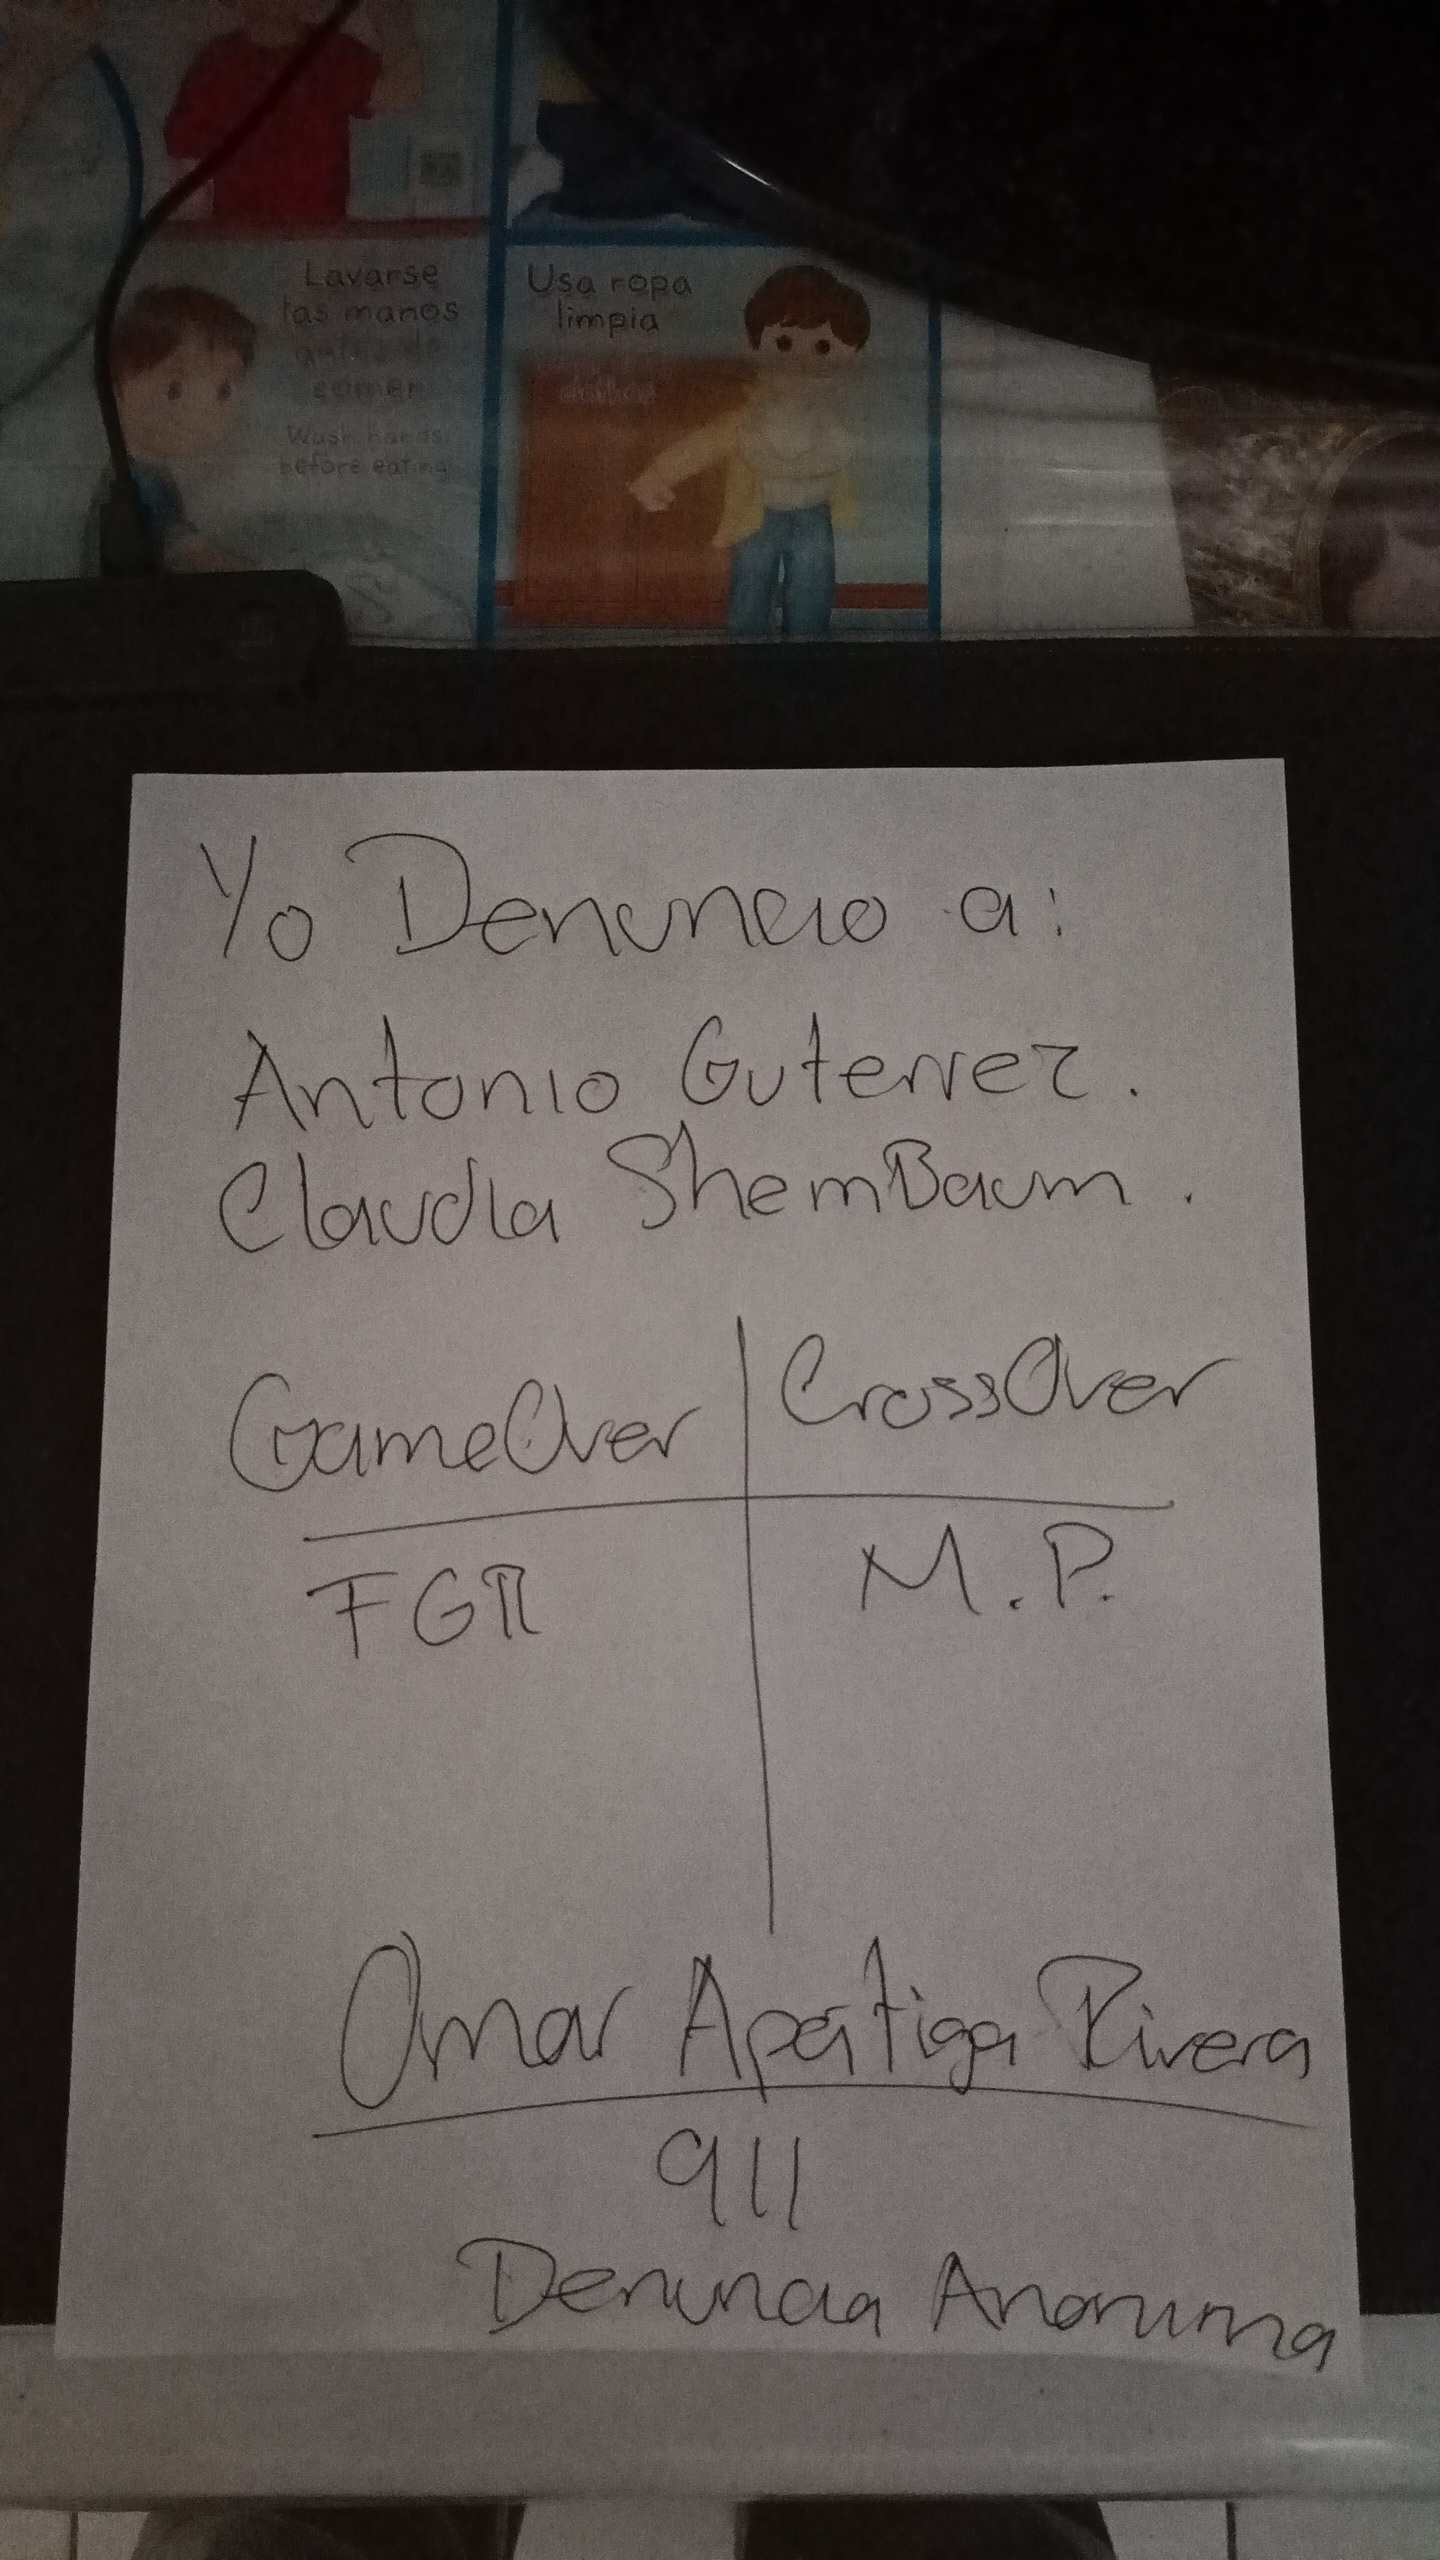 Lavarse
las manos
antes de
comer
Wash hands
before eating
Usa ropa
limpia
Yo Denuncio a:
Antonio Guterrez.
Claudia ShemBaum.
GameOver
CrossOver
FGR
M.P.
Omar Apátiga Rivera
911
Denuncia Anonima